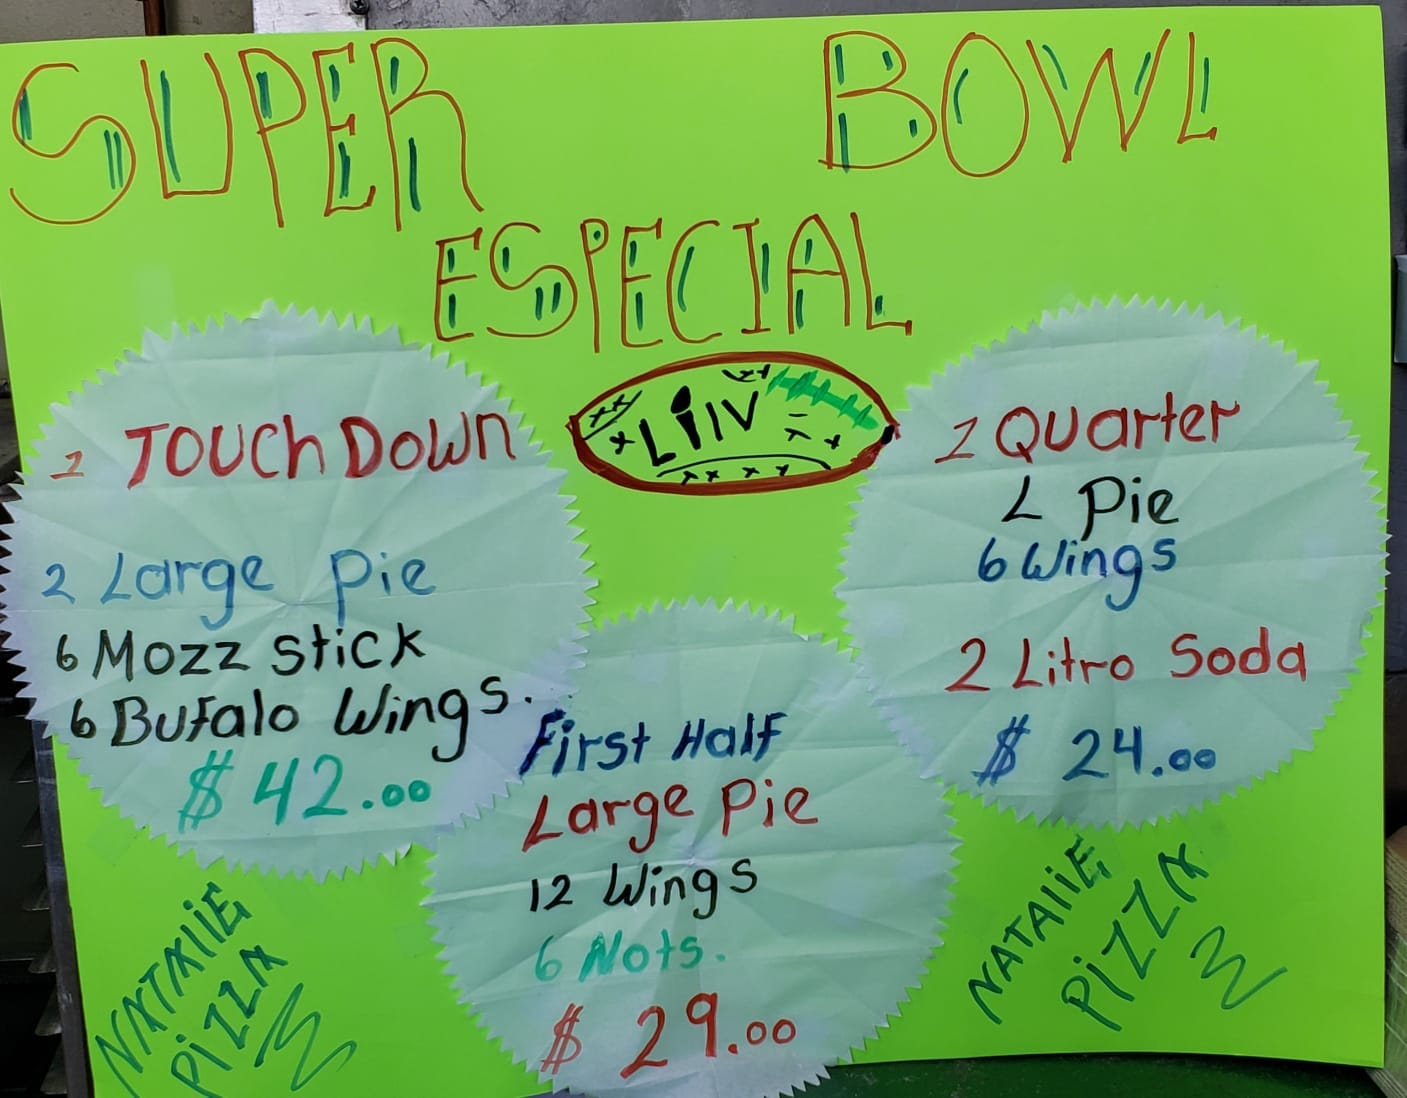 SUPER BOWL
ESPECIAL
LIIV
1 TOUCh DOWN
2 Large Pie
6 Mozz stick
6 Bufalo Wings.
$ 42.00
1 QUarter
L Pie
6 Wings
2 Litro Soda
$ 24.00
First Half
Large Pie
12 Wings
6 Nots.
$ 29.00
NATAliE
PiZZA
NATAliE
PiZZA